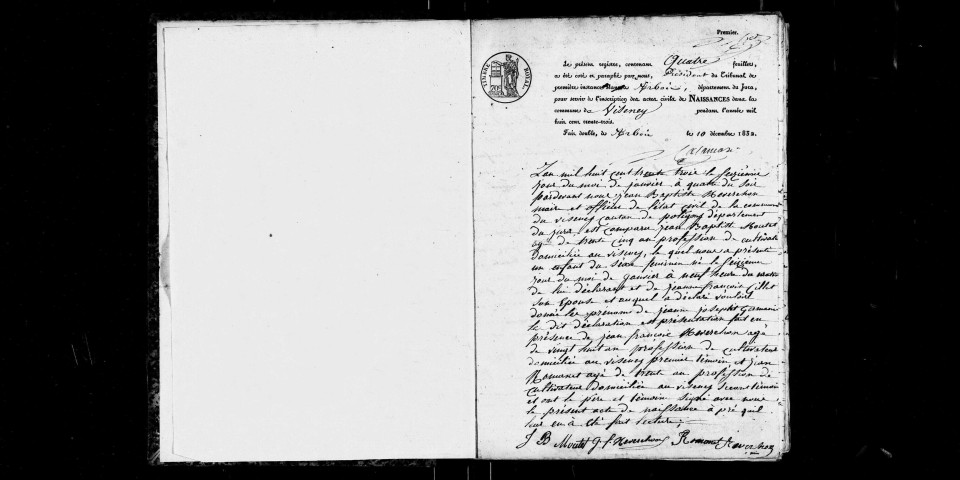 Premier.
TIMBRE ROYAL
Le présent registre, contenant Quatre feuilles,
a été coté et paraphé par nous, Président du Tribunal de
première instance Arbois, département du Jura,
pour servir à l'inscription des actes civils de NAISSANCES dans la
commune de Viseney pendant l'année mil
huit cent trente-trois.
Fait double, à Arbois le 10 décembre 1832.
L'an mil huit cent trente trois le seizieme
jour du moi de janvier à quatre du soir
pardevant nous jean Baptiste Reverchon
maire et officier de l'état civil de la commune
du viseney canton de poligny departement
du jura, est comparu jean Baptiste Moutet
agé de trente cinq an profession de cultivate
domiciliée au viseney, le quel nous a présenté
un enfant du sexe feminin né le seizieme
jour du moi de janvier à neuf heure du matin
de lui déclarant et de jeanne françoise
son épouse et auquel a déclaré vouloir
donné les prenoms de jeanne josepht Germaine
le dit déclaration et présentation fait en
présence de jean françois Reverchon agé
de vingt huit an profession de cultivateur
domiciliée au viseney premier témoin et jean
Romanet agé de trente an profession de
cultivateur domiciliée au viseney second témoin
et ont le père et témoin signé avec nous
le présent acte de naissance à pré quil
leur en à été fait lecture;
J B Moutet J f Reverchon Romanet Reverchon